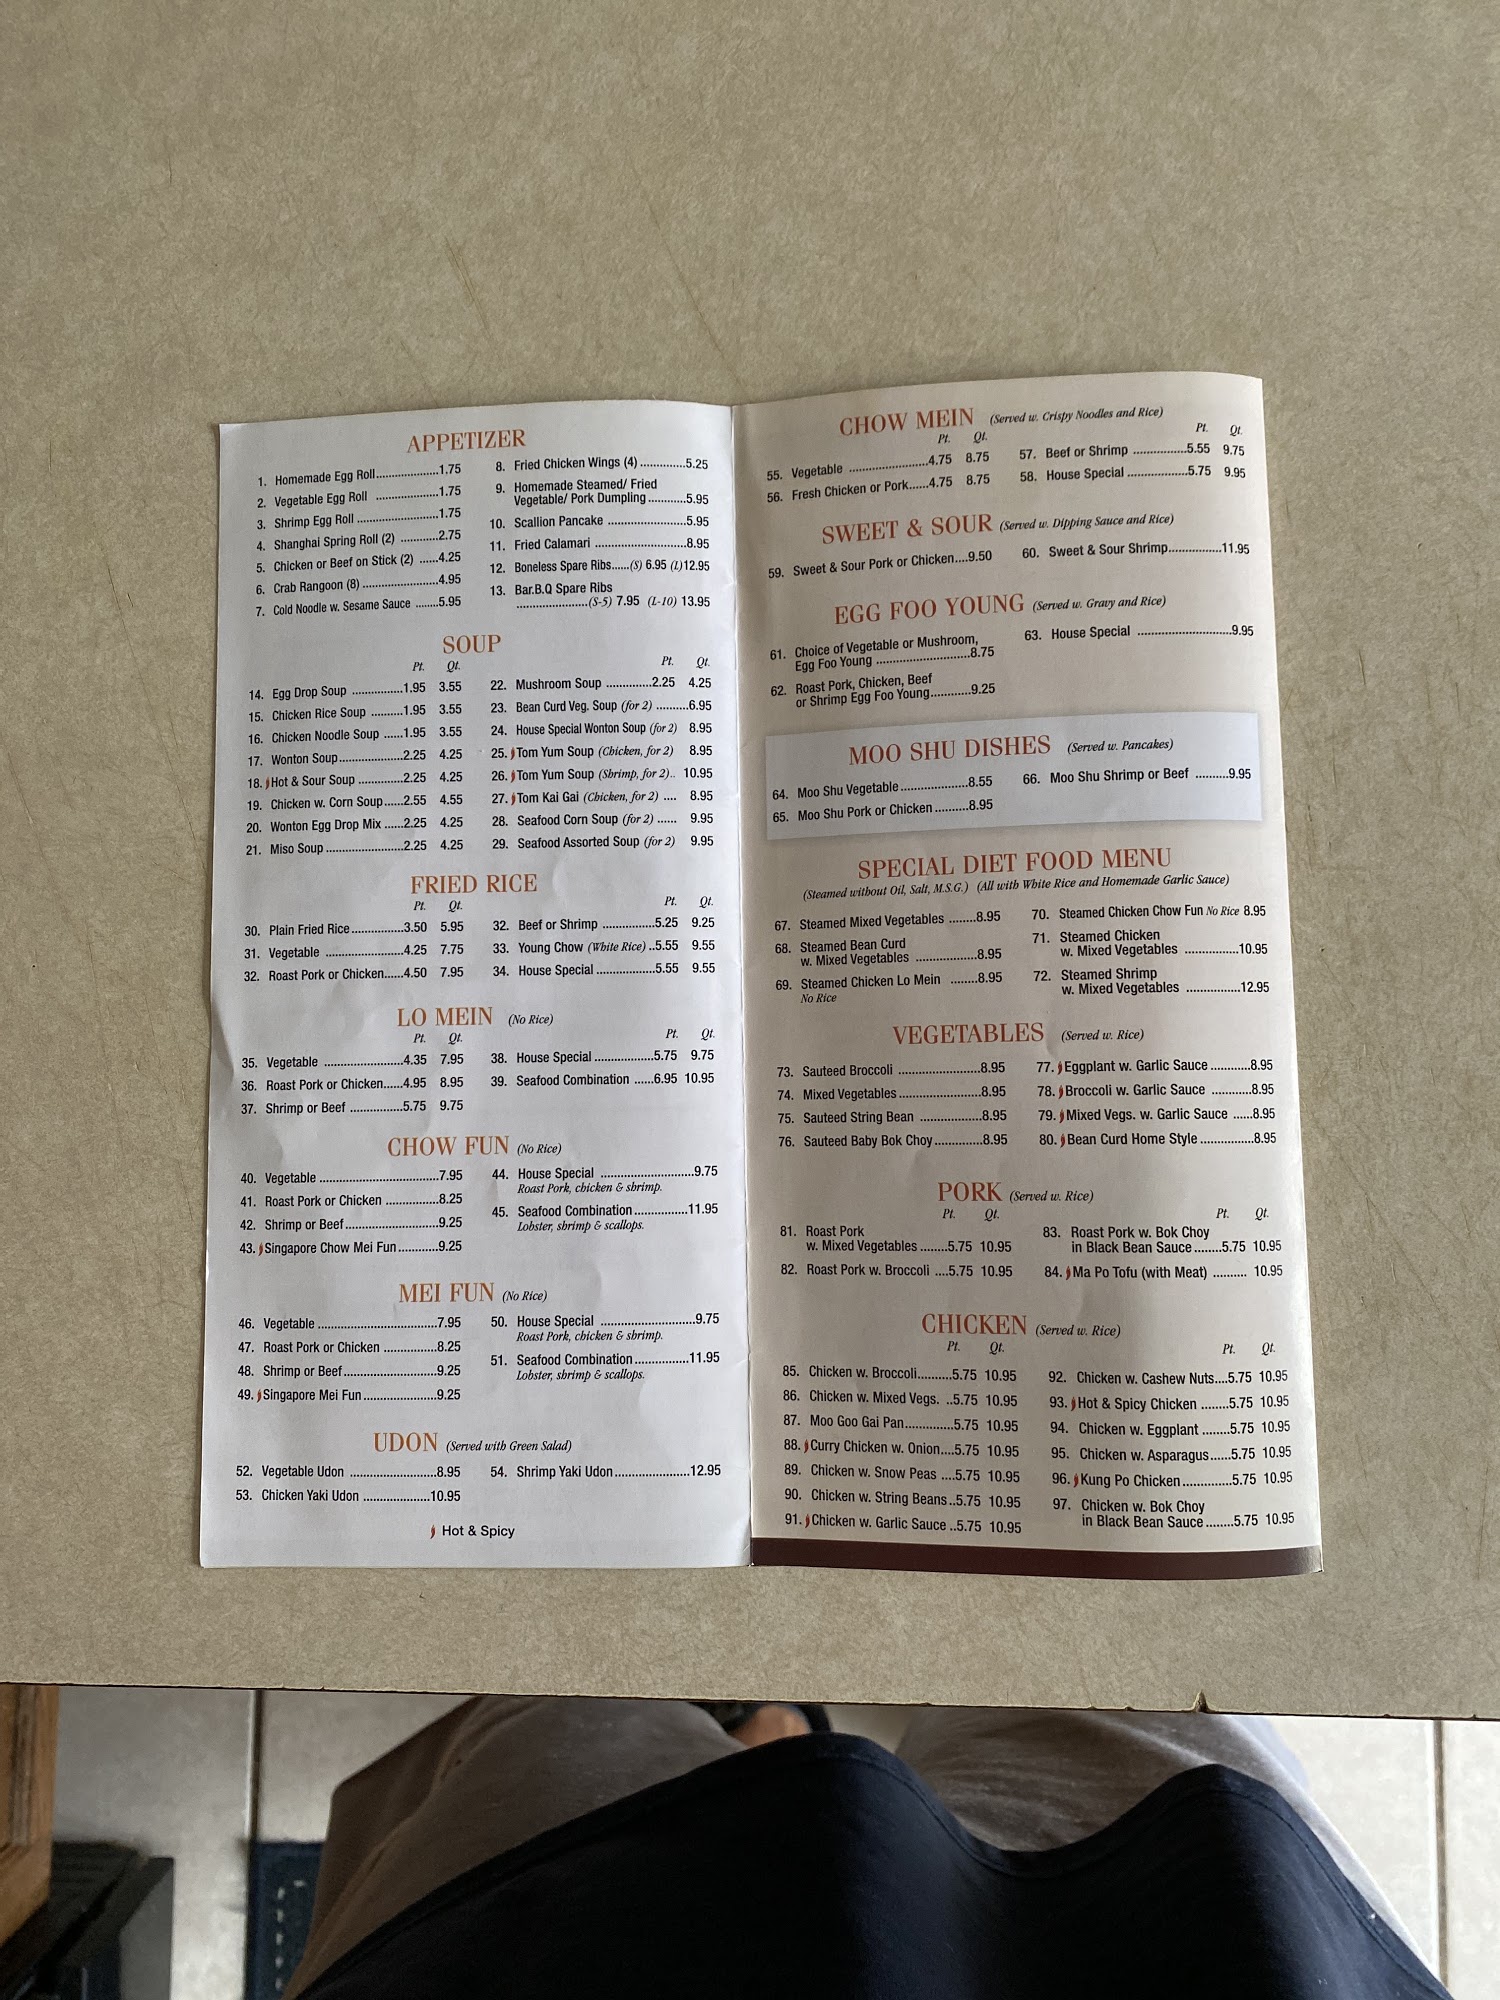 APPETIZER
1. Homemade Egg Roll...................1.75
2. Vegetable Egg Roll ...................1.75
3. Shrimp Egg Roll .........................1.75
4. Shanghai Spring Roll (2) ...........2.75
5. Chicken or Beef on Stick (2) ......4.25
6. Crab Rangoon (8) .......................4.95
7. Cold Noodle w. Sesame Sauce .......5.95
8. Fried Chicken Wings (4) ..............5.25
9. Homemade Steamed/ Fried
Vegetable/ Pork Dumpling ............5.95
10. Scallion Pancake ........................5.95
11. Fried Calamari ............................8.95
12. Boneless Spare Ribs......(S) 6.95 (L)12.95
13. Bar.B.Q Spare Ribs
......................(S-5) 7.95 (L-10) 13.95
SOUP
Pt. Qt.
14. Egg Drop Soup ...............1.95 3.55
15. Chicken Rice Soup ..........1.95 3.55
16. Chicken Noodle Soup ......1.95 3.55
17. Wonton Soup...................2.25 4.25
18. Hot & Sour Soup ..............2.25 4.25
19. Chicken w. Corn Soup......2.55 4.55
20. Wonton Egg Drop Mix ......2.25 4.25
21. Miso Soup .......................2.25 4.25
Pt. Qt.
22. Mushroom Soup ..............2.25 4.25
23. Bean Curd Veg. Soup (for 2) ..........6.95
24. House Special Wonton Soup (for 2) 8.95
25. Tom Yum Soup (Chicken, for 2) 8.95
26. Tom Yum Soup (Shrimp, for 2).. 10.95
27. Tom Kai Gai (Chicken, for 2) .... 8.95
28. Seafood Corn Soup (for 2) ...... 9.95
29. Seafood Assorted Soup (for 2) 9.95
FRIED RICE
Pt. Qt.
30. Plain Fried Rice................3.50 5.95
31. Vegetable ........................4.25 7.75
32. Roast Pork or Chicken......4.50 7.95
Pt. Qt.
32. Beef or Shrimp ................5.25 9.25
33. Young Chow (White Rice) ..5.55 9.55
34. House Special ..................5.55 9.55
LO MEIN (No Rice)
Pt. Qt.
35. Vegetable ........................4.35 7.95
36. Roast Pork or Chicken......4.95 8.95
37. Shrimp or Beef ................5.75 9.75
Pt. Qt.
38. House Special ..................5.75 9.75
39. Seafood Combination ......6.95 10.95
CHOW FUN (No Rice)
40. Vegetable ....................................7.95
41. Roast Pork or Chicken ................8.25
42. Shrimp or Beef............................9.25
43. Singapore Chow Mei Fun............9.25
44. House Special ............................9.75
Roast Pork, chicken & shrimp.
45. Seafood Combination................11.95
Lobster, shrimp & scallops.
MEI FUN (No Rice)
46. Vegetable ....................................7.95
47. Roast Pork or Chicken ................8.25
48. Shrimp or Beef............................9.25
49. Singapore Mei Fun......................9.25
50. House Special ............................9.75
Roast Pork, chicken & shrimp.
51. Seafood Combination................11.95
Lobster, shrimp & scallops.
UDON (Served with Green Salad)
52. Vegetable Udon ..........................8.95
53. Chicken Yaki Udon ....................10.95
54. Shrimp Yaki Udon......................12.95
Hot & Spicy
CHOW MEIN (Served w. Crispy Noodles and Rice)
Pt. Qt.
55. Vegetable ........................4.75 8.75
56. Fresh Chicken or Pork......4.75 8.75
Pt. Qt.
57. Beef or Shrimp ................5.55 9.75
58. House Special ..................5.75 9.95
SWEET & SOUR (Served w. Dipping Sauce and Rice)
59. Sweet & Sour Pork or Chicken....9.50
60. Sweet & Sour Shrimp................11.95
EGG FOO YOUNG (Served w. Gravy and Rice)
61. Choice of Vegetable or Mushroom,
Egg Foo Young ............................8.75
62. Roast Pork, Chicken, Beef
or Shrimp Egg Foo Young............9.25
63. House Special ............................9.95
MOO SHU DISHES (Served w. Pancakes)
64. Moo Shu Vegetable ....................8.55
65. Moo Shu Pork or Chicken ..........8.95
66. Moo Shu Shrimp or Beef ..........9.95
SPECIAL DIET FOOD MENU
(Steamed without Oil, Salt, M.S.G.) (All with White Rice and Homemade Garlic Sauce)
67. Steamed Mixed Vegetables ........8.95
68. Steamed Bean Curd
w. Mixed Vegetables ..................8.95
69. Steamed Chicken Lo Mein ........8.95
No Rice
70. Steamed Chicken Chow Fun No Rice 8.95
71. Steamed Chicken
w. Mixed Vegetables ................10.95
72. Steamed Shrimp
w. Mixed Vegetables ................12.95
VEGETABLES (Served w. Rice)
73. Sauteed Broccoli ........................8.95
74. Mixed Vegetables........................8.95
75. Sauteed String Bean ..................8.95
76. Sauteed Baby Bok Choy..............8.95
77. Eggplant w. Garlic Sauce ............8.95
78. Broccoli w. Garlic Sauce ............8.95
79. Mixed Vegs. w. Garlic Sauce ......8.95
80. Bean Curd Home Style................8.95
PORK (Served w. Rice)
Pt. Qt.
81. Roast Pork
w. Mixed Vegetables ........5.75 10.95
82. Roast Pork w. Broccoli ....5.75 10.95
Pt. Qt.
83. Roast Pork w. Bok Choy
in Black Bean Sauce ........5.75 10.95
84. Ma Po Tofu (with Meat) .......... 10.95
CHICKEN (Served w. Rice)
Pt. Qt.
85. Chicken w. Broccoli..........5.75 10.95
86. Chicken w. Mixed Vegs. ..5.75 10.95
87. Moo Goo Gai Pan..............5.75 10.95
88. Curry Chicken w. Onion....5.75 10.95
89. Chicken w. Snow Peas ....5.75 10.95
90. Chicken w. String Beans..5.75 10.95
91. Chicken w. Garlic Sauce ..5.75 10.95
Pt. Qt.
92. Chicken w. Cashew Nuts....5.75 10.95
93. Hot & Spicy Chicken ........5.75 10.95
94. Chicken w. Eggplant ........5.75 10.95
95. Chicken w. Asparagus......5.75 10.95
96. Kung Po Chicken..............5.75 10.95
97. Chicken w. Bok Choy
in Black Bean Sauce ........5.75 10.95